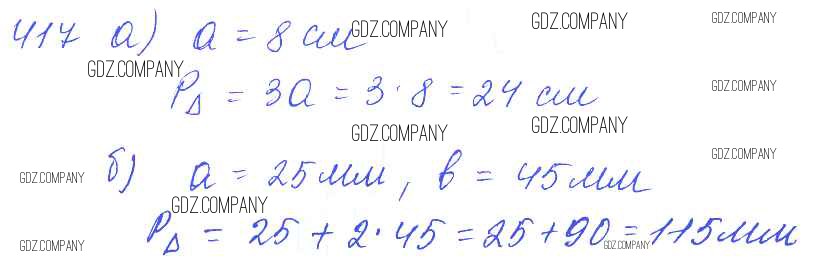 417 а) a = 8 см
P△ = 3a = 3·8 = 24 см
б) a = 25 мм, b = 45 мм
P△ = 25 + 2·45 = 25 + 90 = 115 мм
GDZ.COMPANY
GDZ.COMPANY
GDZ.COMPANY
GDZ.COMPANY
GDZ.COMPANY
GDZ.COMPANY
GDZ.COMPANY
GDZ.COMPANY
GDZ.COMPANY
GDZ.COMPANY
GDZ.COMPANY
GDZ.COMPANY